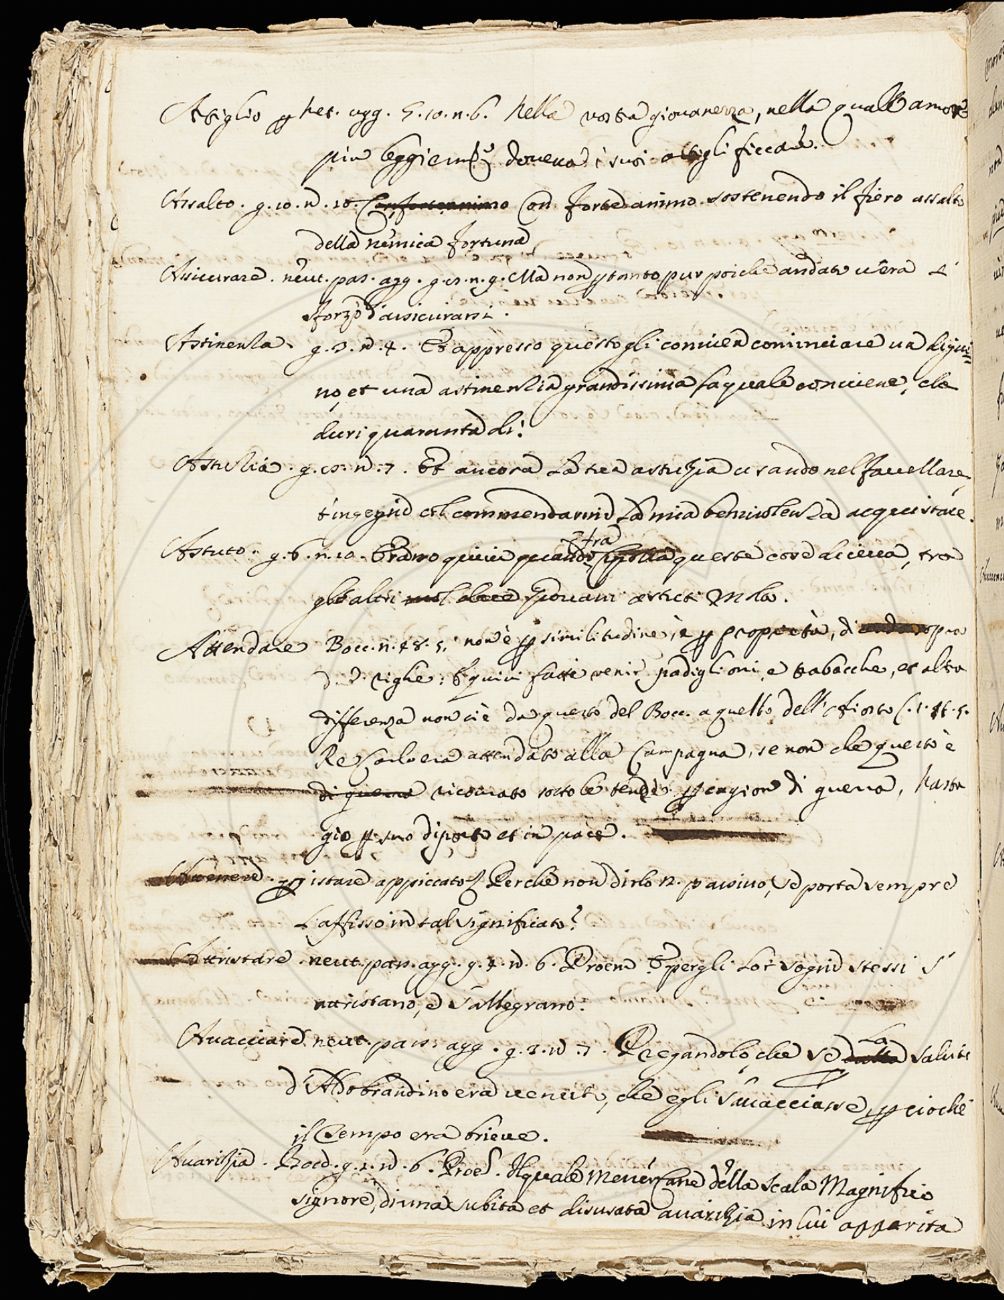 Artiglio p met. agg. g. 10. n. 6. Nella vostra giovanezza, nella quale amore
piu leggierm. doveva i suoi artigli ficcare.
Assalto. g. 10. n. 10. Con forte animo sostenendo il fiero assalto
della nemica fortuna.
Assicurare. neut. pas. agg. g. 10. n. 9. Ma non ptanto pur poiche andato v'era si
sforzò d'assicurarsi.
Astinenza. g. 3. n. 4. Et appresso questo gli convien cominciare un digiu=
no, et una astinenzia grandissima la quale conviene, che
duri quaranta dì.
Astuzia. g. 10. n. 7. Et ancora la tua astuzia usando nel favellare
t'ingegni col commendarmi la mia benivolenza acquistare.
Astuto. g. 6. n. 10. Erano quivi quando fra queste cose diceva, tra
gli altri giovani astuti mola.
Attendare Bocc. n. 48. 5. non è p similitudine, è p proprietà, di sopra
d. 2. righe: E quivi fatti venir padiglioni, e trabacche, et altra
differenza non ci è da questo del Bocc. a quello dell'Ariosto C. 1. st. 5.
Re Carlo era attendato alla Campagna, se non che questo è
di guerra ricovrato sotto le tende p cagion di guerra, Nasta
gio p suo diporto et in pace.
Attenere. p istare appiccato. Perche non dirlo n. passivo, se porta sempre
l'affisso in tal significato?
Attristare. neut. pass. agg. g. 4. n. 6. Proem E per gli lor sogni stessi s'
attristano, e s'allegrano.
Avacciare. neut. pass. agg. g. 3. n. 7. Pregandolo, che se la salute
d'Aldobrandino era venuto, che egli s'avacciasse, p cioche
il tempo era brieve.
Avarizia. Bocc. g. 1. n. 6. Proem. Il quale Messer Cane della Scala Magnifico
signore, di una subita et disusata avarizia in lui apparita